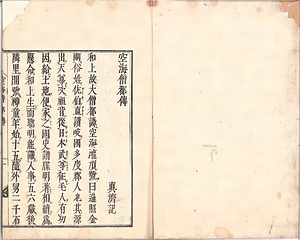 空海僧都傳
真濟記
和上故大僧都諱空海灌頂號曰遍照金
剛俗姓佐伯直讃岐國多度郡人也其源
出天尊次祖昔從日本武尊征毛人有功
因給土地便家之國史譜牒明著相續為
縣令和上生而聰明能識人事五六歲後
隣里間號神童年始十五隨外舅二千石